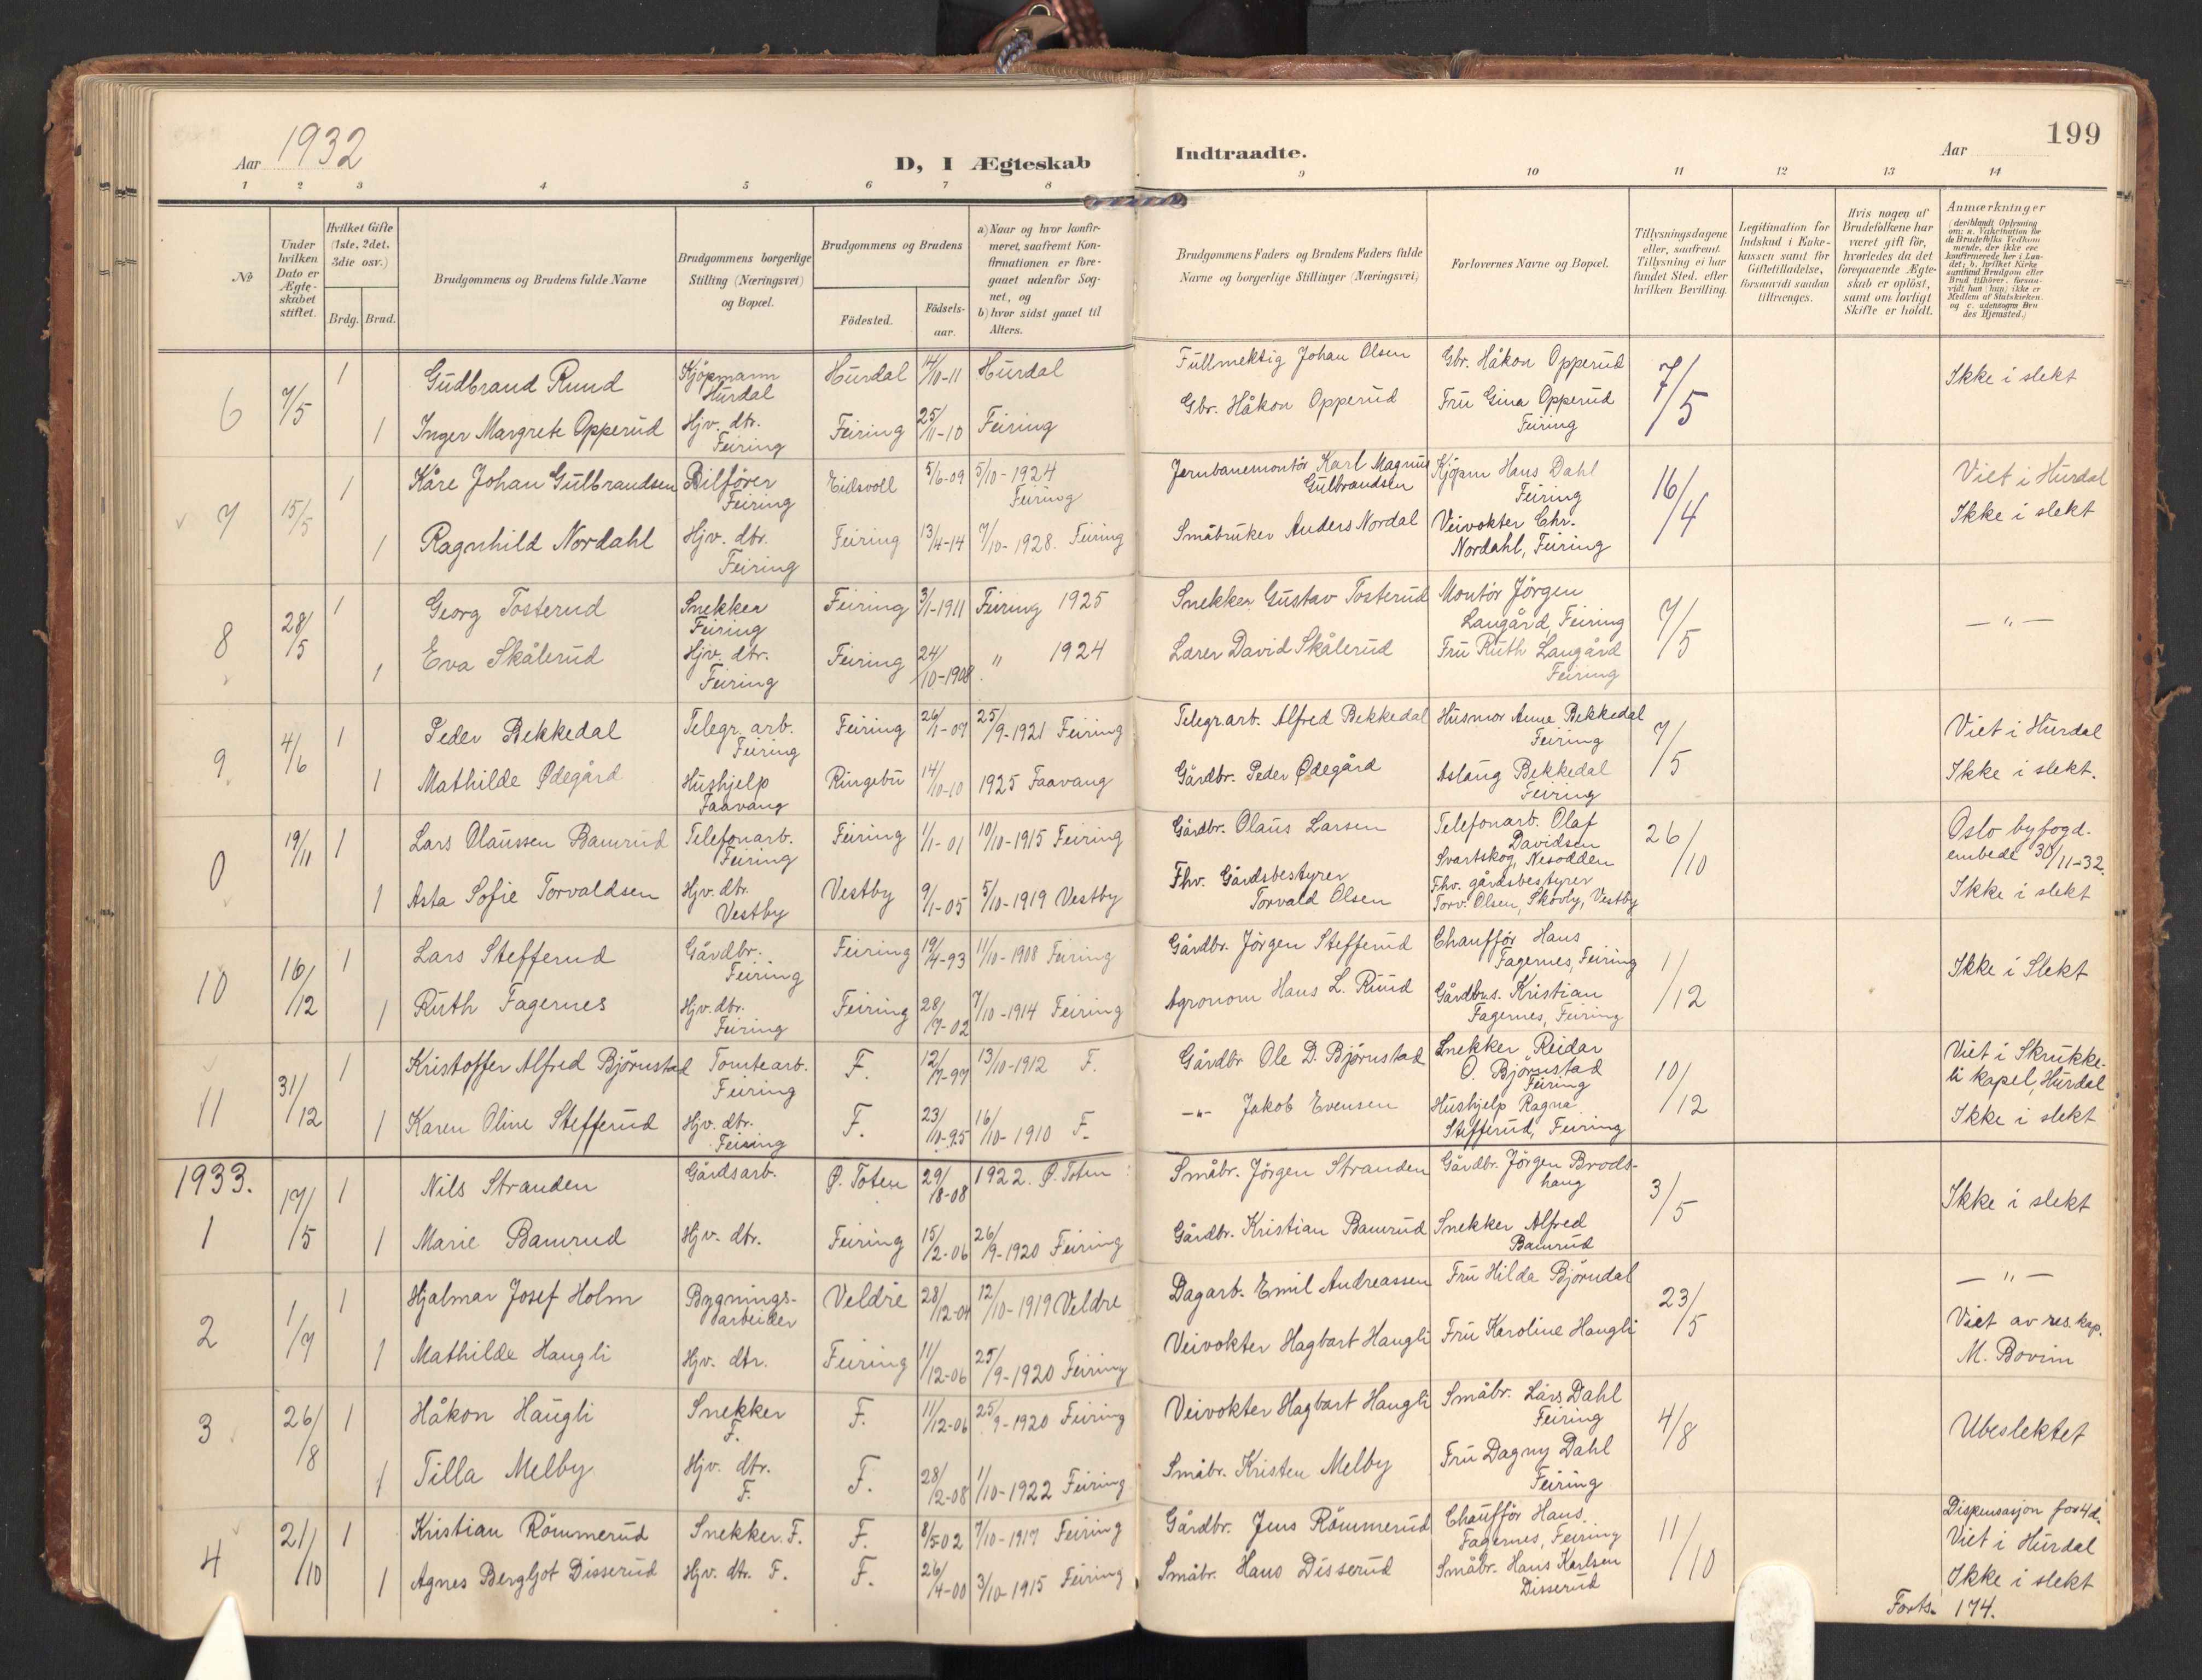 199
Aar 1932
D, I Ægteskab
Indtraadte.
Aar
1 2 3 4 5 6 7 8 9 10 11 12 13 14
No
Under hvilken Dato er Ægteskabet stiftet.
Hvilket Gifte (1ste, 2det, 3die osv.)
Brdg. Brud.
Brudgommens og Brudens fulde Navne
Brudgommens borgerlige Stilling (Næringsvei) og Bopæl.
Brudgommens og Brudens
Födested.
Födsels-aar.
a) Naar og hvor konfirmeret, saafremt Konfirmationen er foregaaet udenfor Sognet, og
b) hvor sidst gaaet til Alters.
Brudgommens Faders og Brudens Faders fulde Navne og borgerlige Stillinger (Næringsvei)
Forlovernes Navne og Bopæl.
Tillysningsdagene eller, saafremt Tillysning ei har fundet Sted, efter hvilken Bevilling.
Legitimation for Indskud i Enkekassen samt for Giftetilladelse, forsaavidt saadan tiltrænges.
Hvis nogen af Brudefolkene har været gift för, hvorledes da det foregaaende Ægteskab er oplöst, samt om lovligt Skifte er holdt.
Anmærkninger (deriblandt Oplysning om: a. Vakcination for de Brudefolks Vedkommende, der ikke ere konfirmerede her i Landet; b. hvilket Kirkesamfund Brudgom eller Brud tilhörer, forsaavidt han (hun) ikke er Medlem af Statskirken, og c. udensogns Brudes Hjemsted.)
6 7/5 1 Gudbrand Ruud Kjöpmann Hurdal Hurdal 14/10-11 Hurdal Fullmektig Johan Olsen Gbr. Håkon Opperud 7/5 Ikke i slekt
1 Inger Margrete Opperud Hjv. dtr. Feiring Feiring 25/11-10 Feiring Gbr. Håkon Opperud Fru Gina Opperud Feiring
7 15/5 1 Kåre Johan Gulbrandsen Bilförer Feiring Eidsvoll 5/6-09 5/10-1924 Feiring Jernbanemontör Karl Magnus Gulbrandsen Kjöpm Hans Dahl Feiring 16/4 Viet i Hurdal
1 Ragnhild Nordahl Hjv. dtr. Feiring Feiring 13/4-14 7/10-1928. Feiring Småbruker Anders Nordal Veivokter Chr. Nordahl, Feiring Ikke i slekt
8 28/5 1 Georg Tosterud Snekker Feiring Feiring 3/1-1911 Feiring 1925 Snekker Gustav Tosterud Montör Jörgen Langård, Feiring 7/5 — " —
1 Eva Skålerud Hjv. dtr. Feiring Feiring 24/10-1908 " 1924 Lærer David Skålerud Fru Ruth Langård Feiring
9 4/6 1 Peder Bekkedal Telegr. arb. Feiring Feiring 26/1-07 25/9-1921 Feiring Telegr.arb. Alfred Bekkedal Husmor Anne Bekkedal Feiring 7/5 Viet i Hurdal
1 Mathilde Ødegård Hushjelp Faavang Ringebu 14/10-10 1925 Faavang Gårdbr. Peder Ødegård Aslaug Bekkedal Feiring Ikke i slekt.
0 19/11 1 Lars Olaussen Bamrud Telefonarb. Feiring Feiring 1/1-01 10/10-1915 Feiring Gårdbr. Olaus Larsen Telefonarb. Olaf Davidsen Svartskog, Nesodden 26/10 Oslo byfogd-embede 30/11-32.
1 Asta Sofie Torvaldsen Hjv. dtr. Vestby Vestby 9/1-05 5/10-1919 Vestby Fhv. Gårdsbestyrer Torvald Olsen Fhv. gårdsbestyrer Torv. Olsen, Skovly, Vestby Ikke i slekt
10 16/12 1 Lars Stefferud Gårdbr. Feiring Feiring 19/4-93 11/10-1908 Feiring Gårdbr. Jörgen Stefferud Chaufför Hans Fagernes, Feiring 1/12 Ikke i Slekt
1 Ruth Fagernes Hjv. dtr. Feiring Feiring 28/7-02 7/10-1914 Feiring Agronom Hans L. Ruud Gårdbrs. Kristian Fagernes, Feiring
11 31/12 1 Kristoffer Alfred Björnstad Tomtearb. Feiring F. 12/7-97 13/10-1912 F. Gårdbr Ole D. Björnstad Snekker Reidar O. Björnstad Feiring 10/12 Viet i Skrukke-li kapel, Hurdal
1 Karen Oline Stefferud Hjv. dtr. Feiring F. 23/10-95 16/10-1910 F. —"— Jakob Evensen Hushjelp Ragna Stefferud, Feiring Ikke i slekt
1933.
1 17/5 1 Nils Stranden Gårdsarb. Ø. Toten 29/8-08 1922. Ø. Toten Småbr. Jörgen Stranden Gårdbr. Jörgen Brods-haug 3/5 Ikke i slekt
1 Marie Bamrud Hjv. dtr. Feiring 15/2-06 26/9-1920 Feiring Gårdbr. Kristian Bamrud Snekker Alfred Bamrud
2 1/7 1 Hjalmar Josef Holm Bygnings-arbeider Veldre 28/12-04 12/10-1919 Veldre Dagarb. Emil Andreassen Fru Hilda Björndal 23/5 — " —
1 Mathilde Haugli Hjv. dtr. Feiring 11/12-06 25/9-1920 Feiring Veivokter Hagbart Haugli Fru Karoline Haugli Viet av res. kap. M. Bovim
3 26/8 1 Håkon Haugli Snekker F. F. 11/12-06 25/9-1920 Feiring Veivokter Hagbart Haugli Småbr. Lars Dahl Feiring 4/8 Ubeslektet
1 Tilla Melby Hjv. dtr. F. F. 28/2-08 1/10-1922 Feiring Småbr. Kristen Melby Fru Dagny Dahl Feiring
4 21/10 1 Kristian Römmerud Snekker. F. F. 8/5-02 7/10-1917 Feiring Gårdbr. Jens Römmerud Chaufför Hans Fagernes, Feiring 11/10 Dispensasjon for 4d. Viet i Hurdal
1 Agnes Bergljot Disserud Hjv. dtr. F. F. 26/4-00 3/10-1915 Feiring Småbr. Hans Disserud Småbr. Hans Karlsen Disserud Ikke i slekt
Forts. 174.